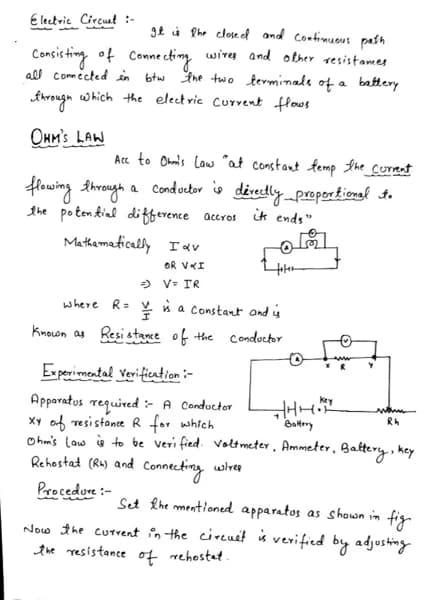 Electric Circuit :-
It is the closed and Continuous path
Consisting of Connecting wires and other resistances
all connected in btw the two terminals of a battery
through which the electric current flows
OHM'S LAW
Acc to Ohm's Law "at constant temp the current
flowing through a conductor is directly proportional to
the potential difference accros its ends"
Mathamatically I ∝ V
OR V ∝ I
⇒ V = IR
where R = V/I is a constant and is
Known as Resistance of the conductor
Experimental Verifiction :-
Apparatus required :- A Conductor
XY of resistance R for which
Ohm's Law is to be verified. Voltmeter, Ammeter, Battery, key
Rehostat (Rh) and Connecting wires
Procedure :-
Set the mentioned apparatus as shown in fig
Now the current in the circuit is verified by adjusting
the resistance of rehostat.
A
V
A
X R Y
+ Battery
Key
Rh